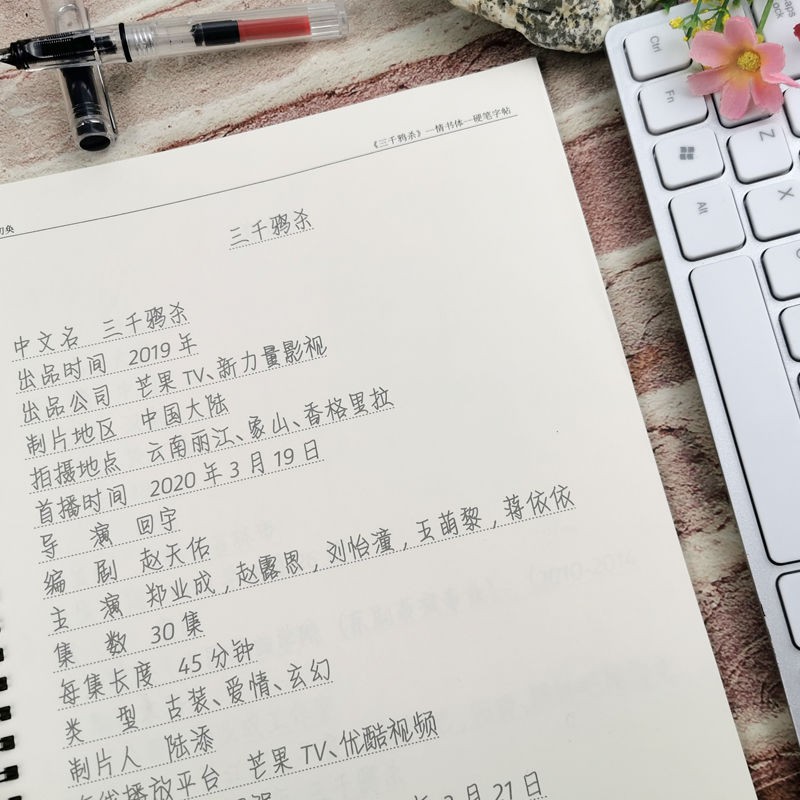 《三千鸦杀》—情书体—硬笔字帖
奂
三千鸦杀
中文名 三千鸦杀
出品时间 2019 年
出品公司 芒果 TV、新力量影视
制片地区 中国大陆
拍摄地点 云南丽江、象山、香格里拉
首播时间 2020 年 3 月 19 日
导 演 回宇
编 剧 赵天佑
主 演 郑业成，赵露思，刘怡潼，王萌黎，蒋依依
集 数 30 集
每集长度 45 分钟
类 型 古装、爱情、玄幻
制片人 陆添
在线播放平台 芒果 TV、优酷视频
年 3 月 21 日
Ctrl
Caps Lock
Fn
Z
Alt
X